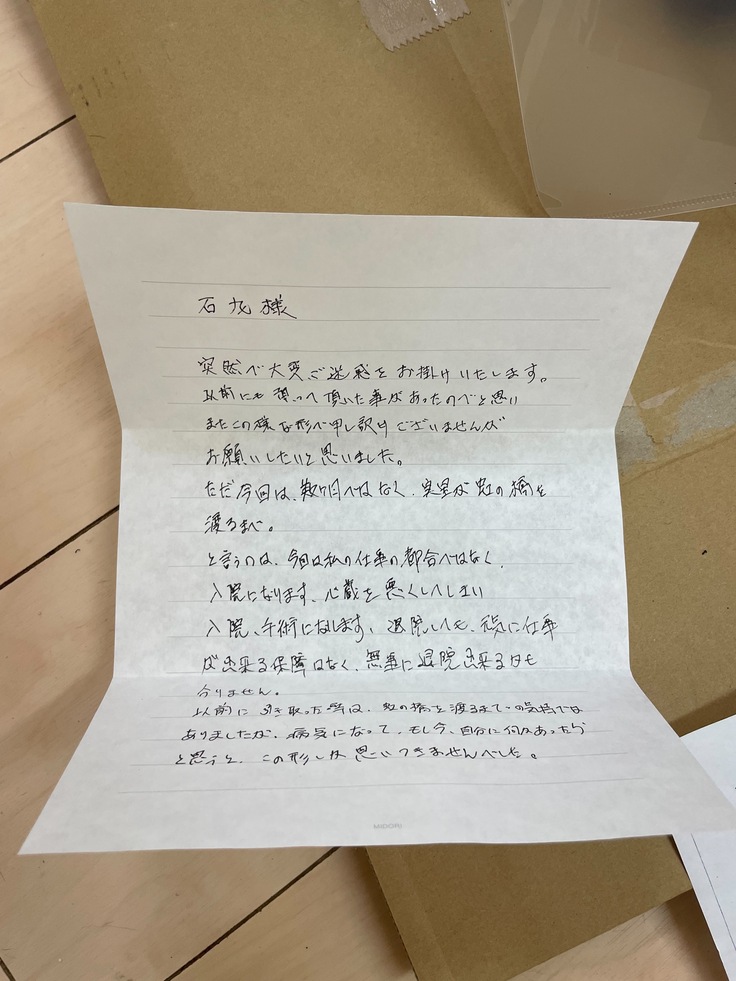 石丸様
突然で大変ご迷惑をお掛けいたします。
以前にも預って頂いた事があったのでと思い
またこの様な形で申し訳けございませんが
お願いしたいと思いました。
ただ今回は、数ヶ月ではなく、実里が虹の橋を
渡るまで。
と言うのは、今回は私の仕事の都合ではなく、
入院になります、心臓を悪くしてしまい
入院、手術になります、退院しても、元気に仕事
が出来る保障はなく、無事に退院出来るかも
分りません。
以前に引き取った時は、虹の橋を渡るまでの気持では
ありましたが、病気になって、もし今、自分に何かあったら
と思うと、この形しか思いつきませんでした。
MIDORI